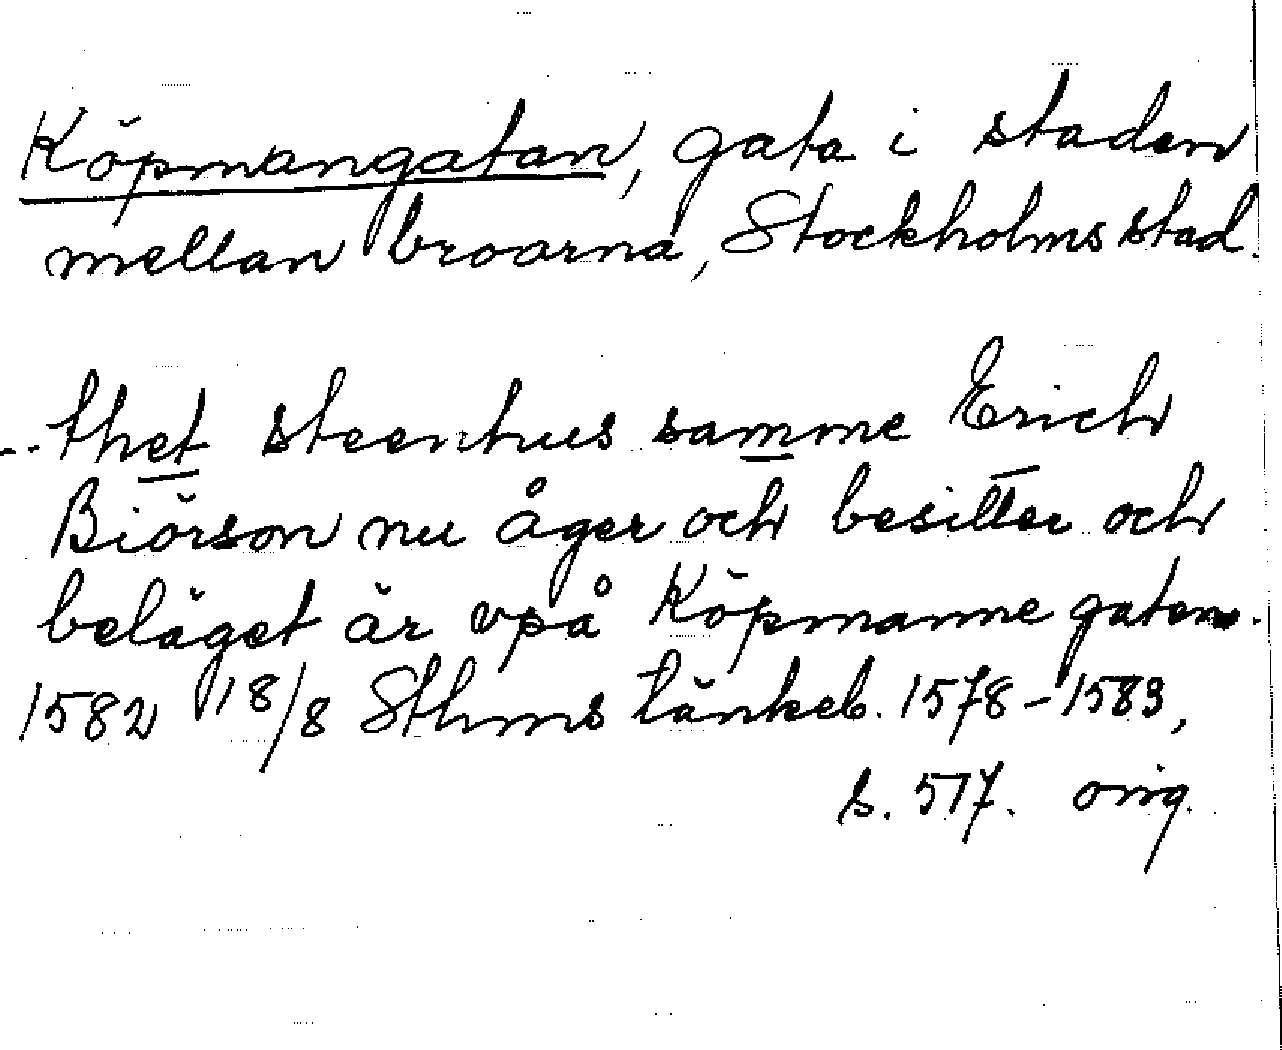 Köpmangatan, gata i staden
mellan broarna, Stockholms stad.
-.. thet steenhus samme Erich
Biörson nu åger och besitter och
beläget är vpå Köpmanne gaten.
1582 18/8 Sthms tänkeb. 1578-1583,
s. 517. orig.